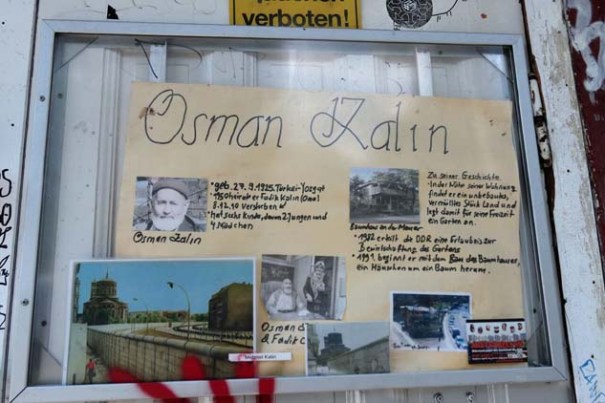 verboten!
Osman Kalin
*geb. 27.9.1925. Türkei-Yozgat
8.12.10 Verstorben
*hat sechs kinder, davon 2 Jungen und
4 Mädchen
Osman Kalin
Zu seiner Geschichte
In der Nähe seiner Wohnung
findet er ein unbebautes,
vermülltes Stück Land und
legt damit für seine Freizeit
ein Garten an.
Baumhaus an der Mauer
*1982 erteilt die DDR eine Erlaubnis zur
Bewirtschaftung des Gartens
*1991 beginnt er mit dem Bau des Baumhauses,
ein Häuschen um ein Baum herum.
Osman
& Fadik
Mehmet Kalin